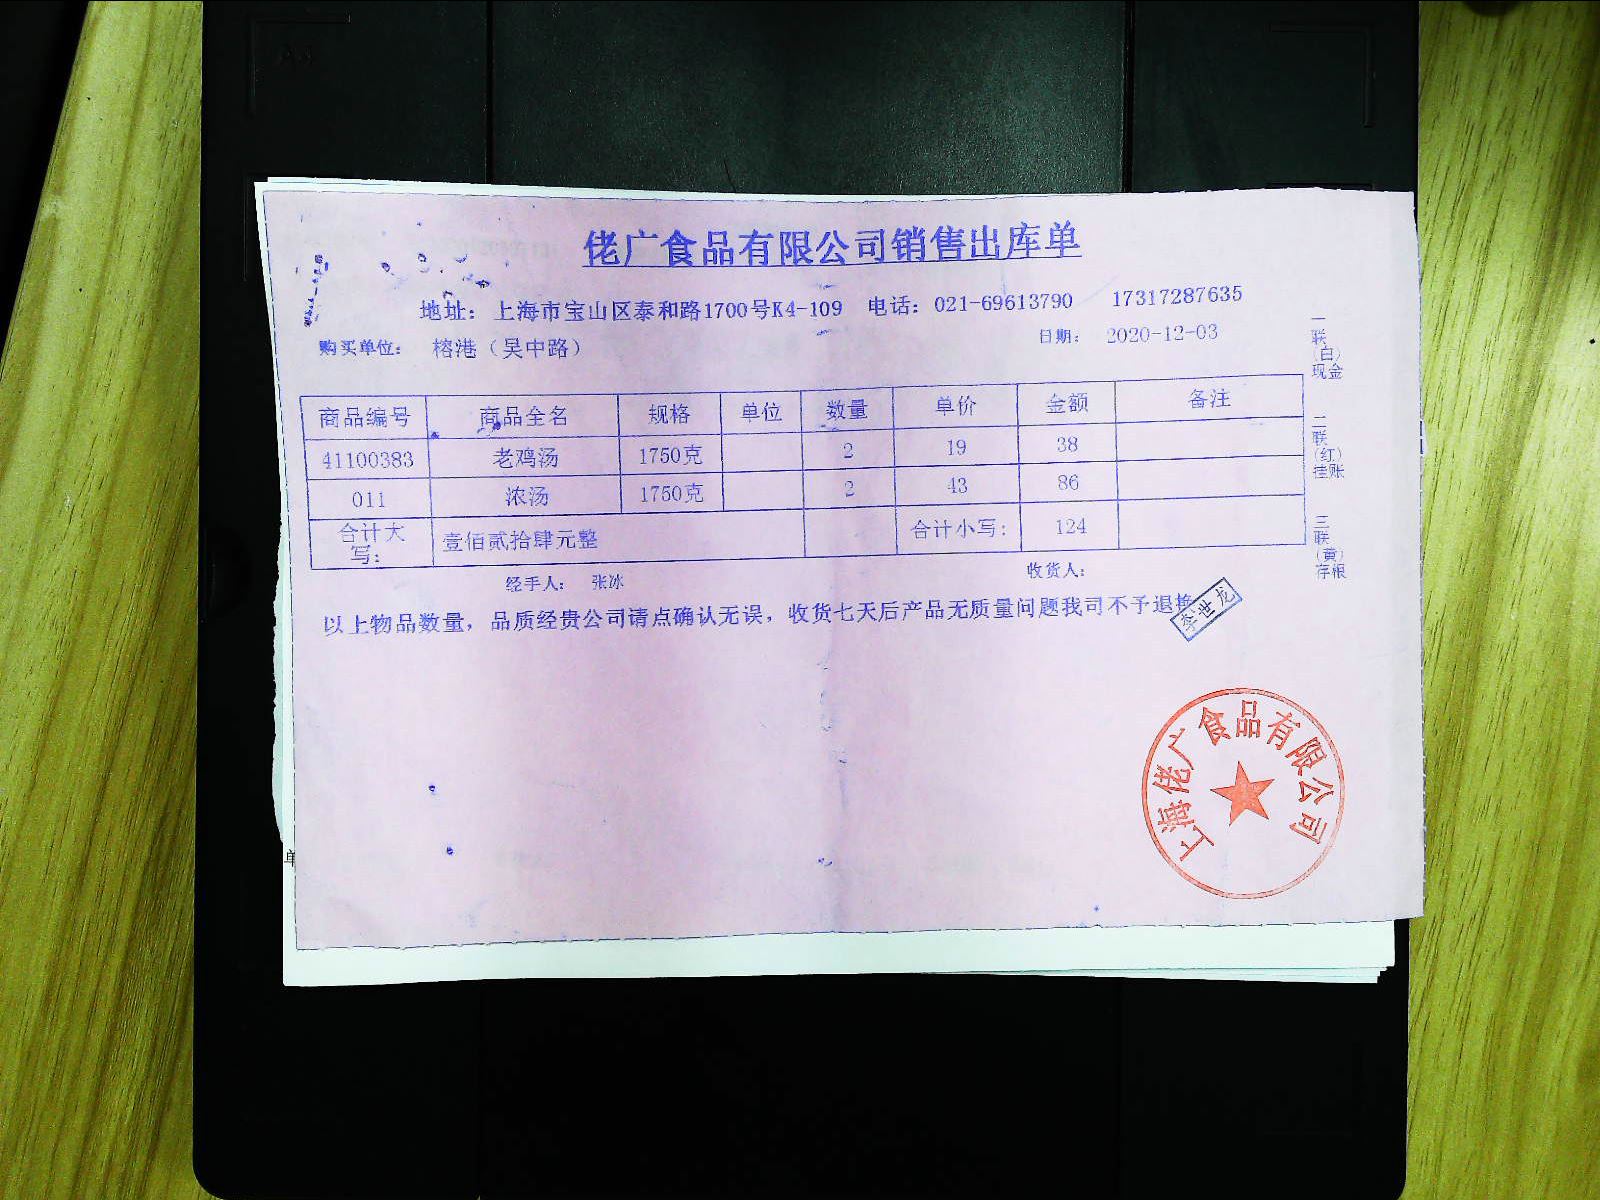 佬广食品有限公司销售出库单
地址：上海市宝山区泰和路1700号K4-109 电话：021-69613790 17317287635
购买单位： 榕港（吴中路） 日期： 2020-12-03
商品编号 商品全名 规格 单位 数量 单价 金额 备注
41100383 老鸡汤 1750克 2 19 38
011 浓汤 1750克 2 43 86
合计大写： 壹佰贰拾肆元整 合计小写： 124
经手人： 张冰 收货人：
以上物品数量，品质经贵公司请点确认无误，收货七天后产品无质量问题我司不予退换
李世龙
一联（白）现金
二联（红）挂账
三联（黄）存根
上海佬广食品有限公司